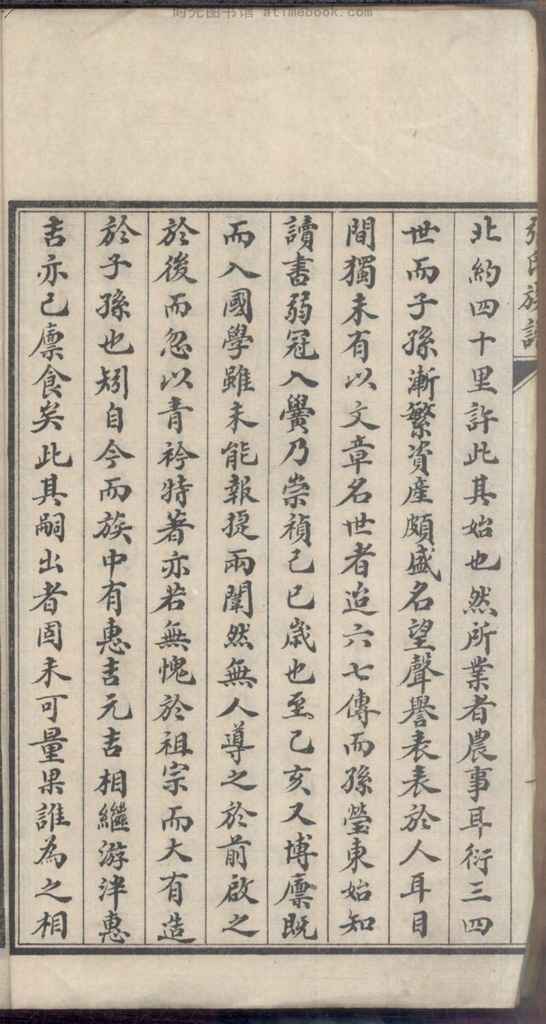 时光图书馆 atimebook.com
張氏族譜
北約四十里許此其始也然所業者農事耳衍三四
世而子孫漸繁資産頗盛名望聲譽表表於人耳目
間獨未有以文章名世者迨六七傳而孫瑩東始知
讀書弱冠入黌乃崇禎己巳歲也至乙亥又博廩既
而入國學雖未能報捷兩闈然無人導之於前啟之
於後而忽以青衿特著亦若無愧於祖宗而大有造
於子孫也矧自今而族中有惠吉元吉相繼游泮惠
吉亦已廩食矣此其嗣出者固未可量果誰為之相